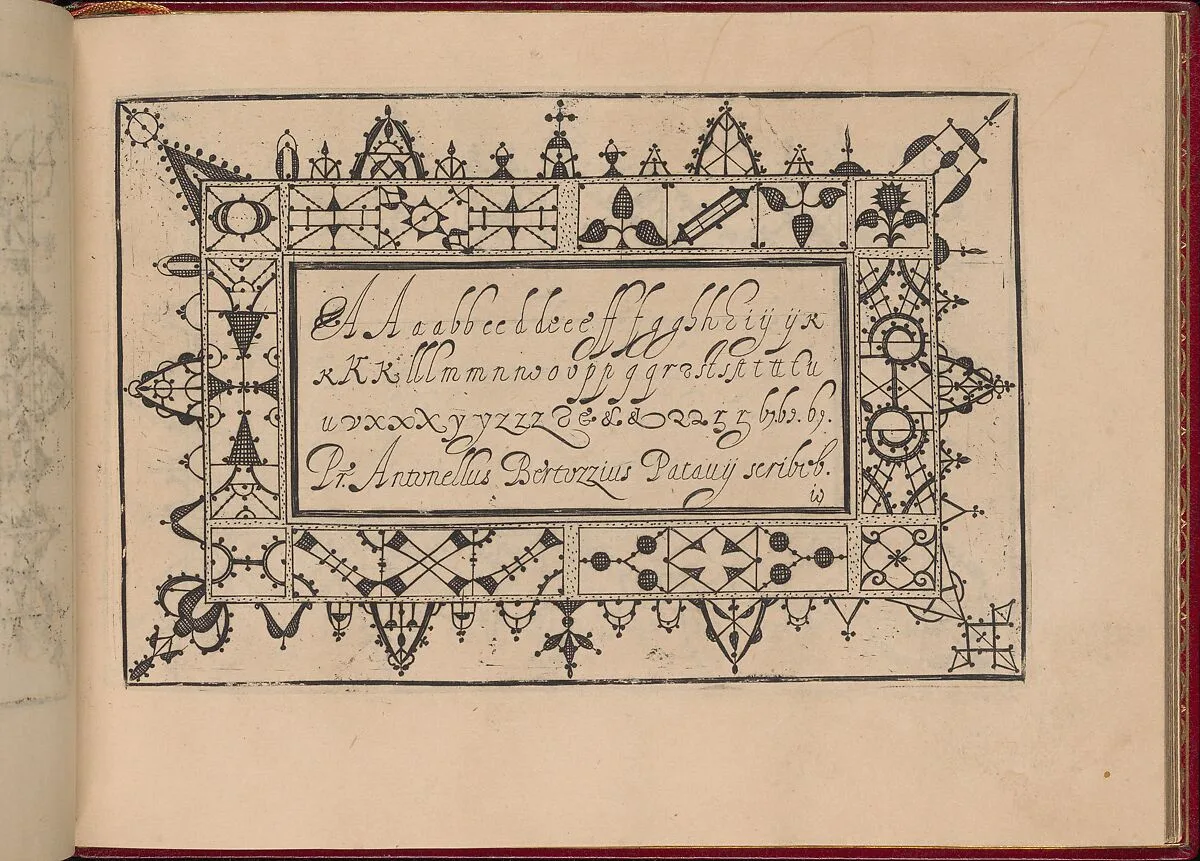 A A a a b b c c d d e e e ff f g g h h h i ij ij k
k K k l l l m m n n w o v p p q q r r s st st t t t t u
u v x x x X y y z z z & & & b9. b9. b9.
Pr. Antonellus Bertozzius Patauij scribeb.